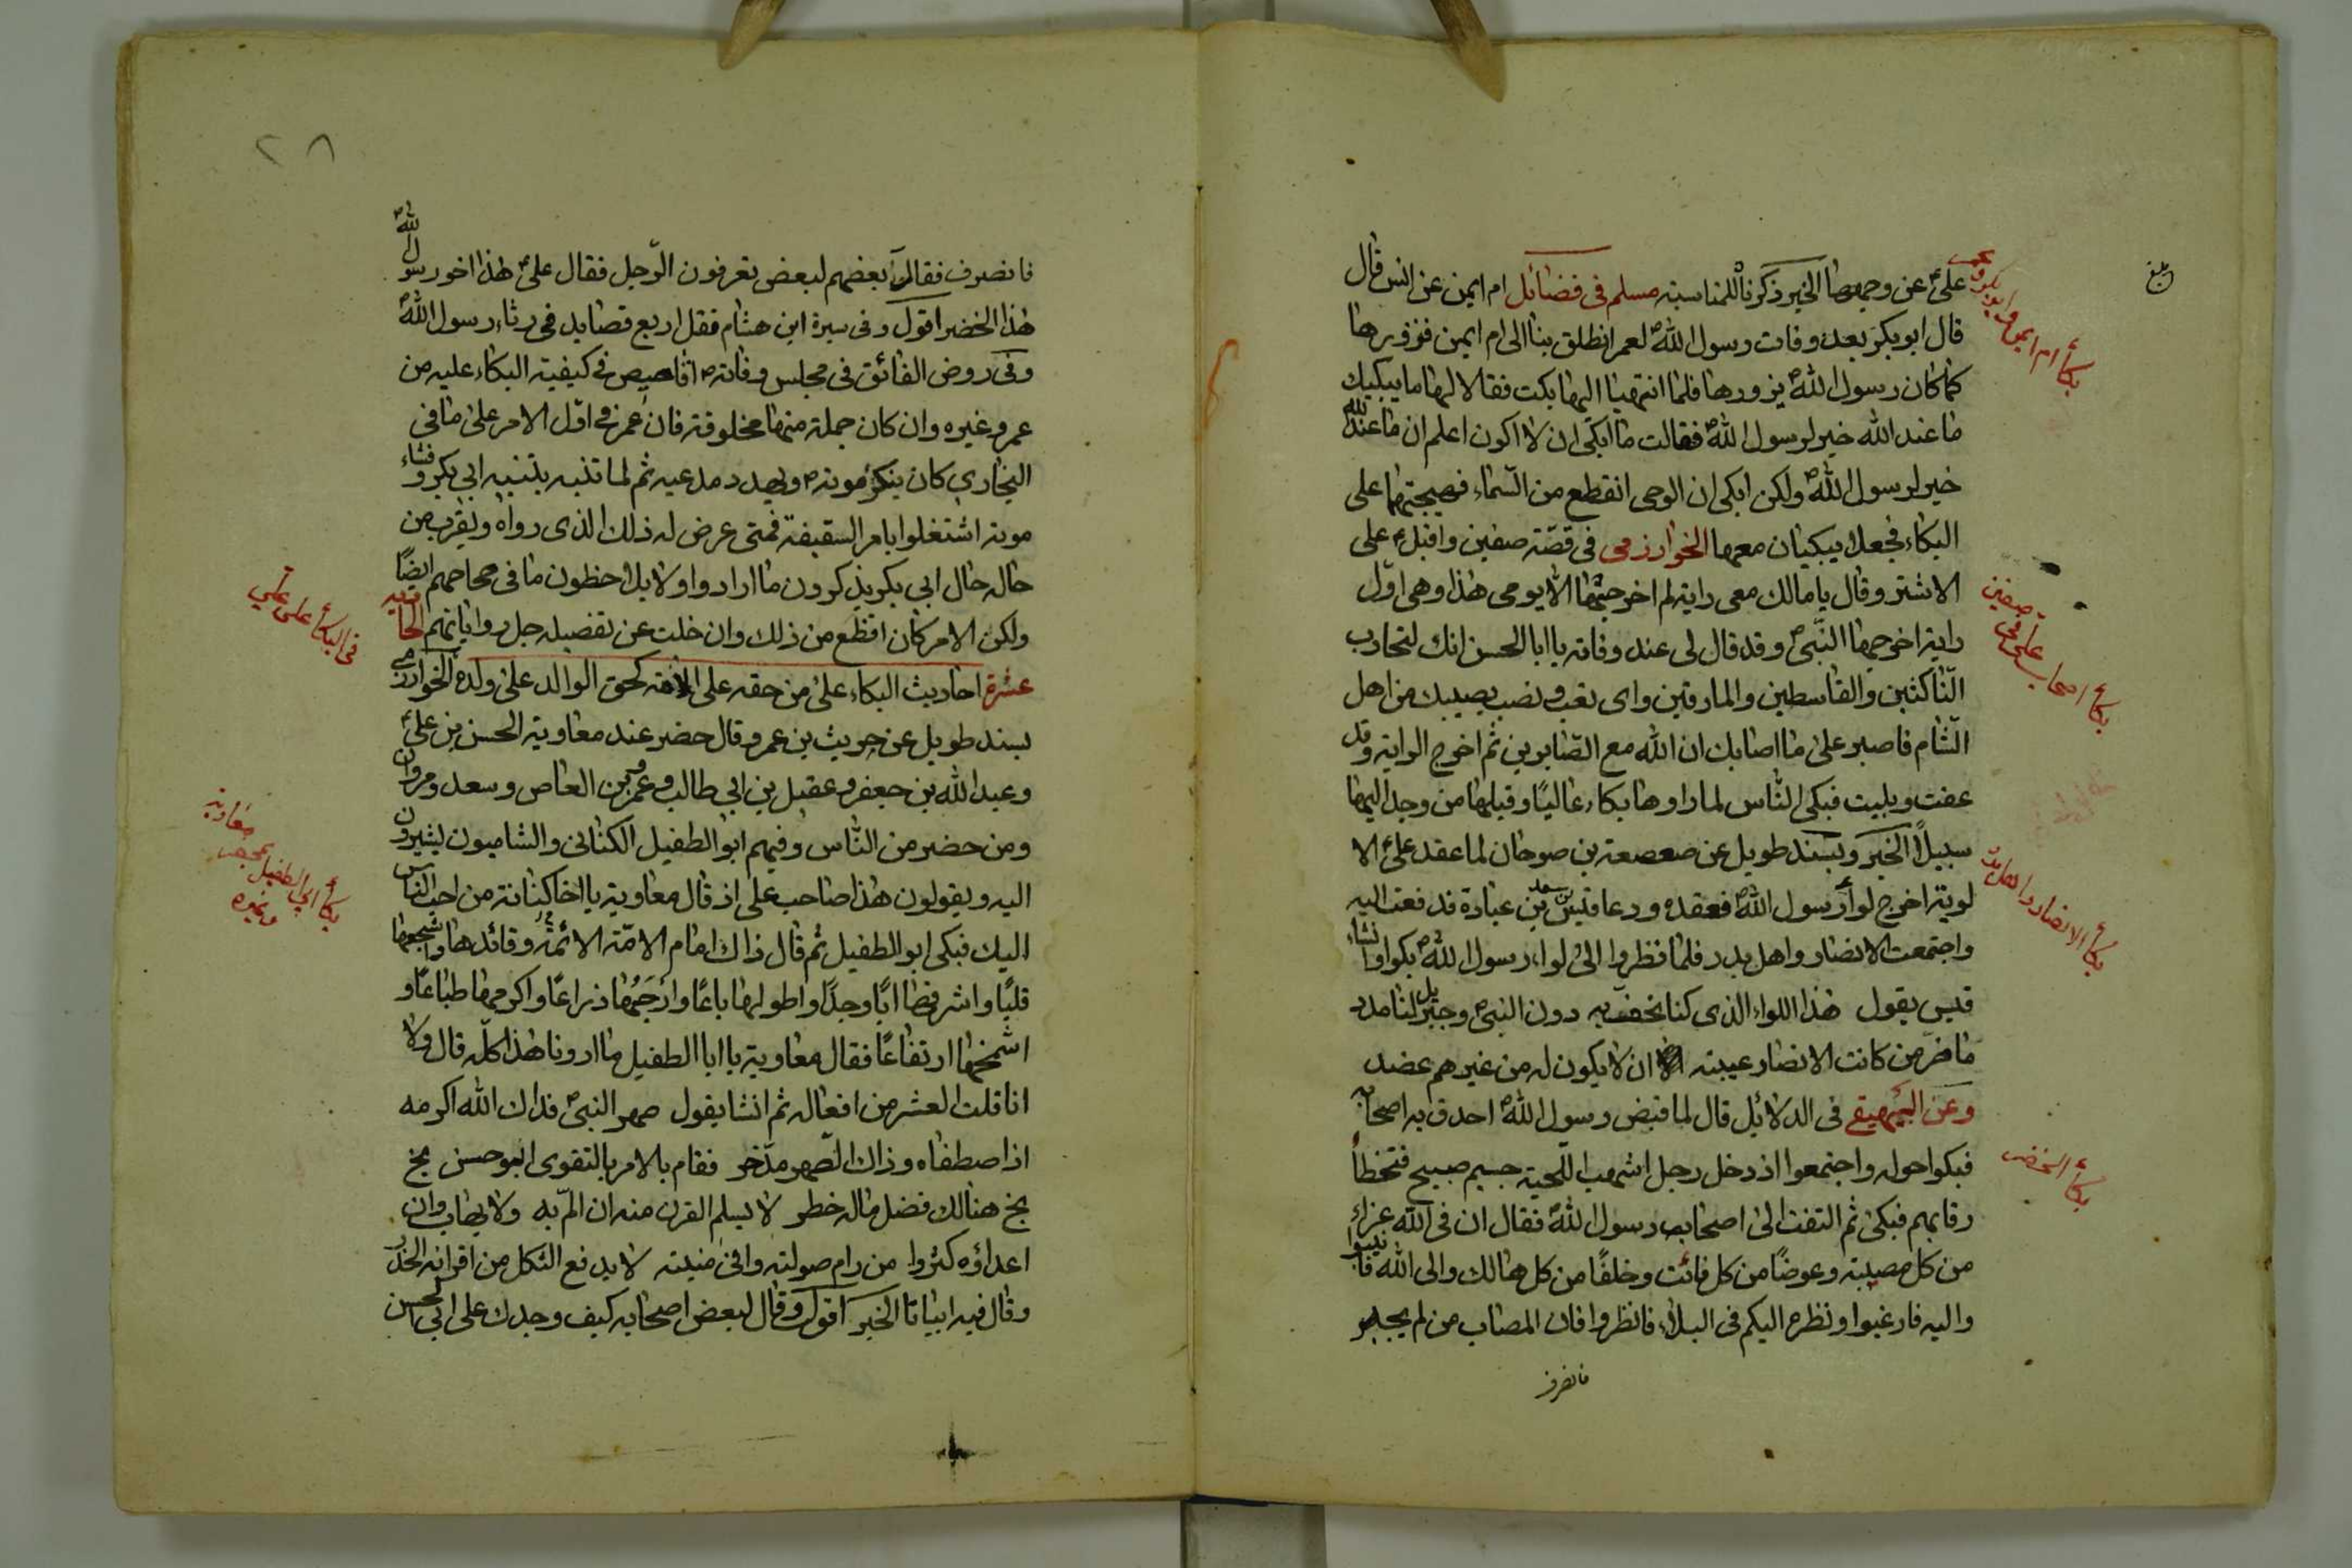 علیؑ عن وجهها الخبر ذكرناه للمناسبة مسلم فی فضائل ام ایمن عن انس قال
قال ابو بكر بعد وفات رسول اللهؐ لعمر انطلق بنا الی ام ایمن فنزورها
كما كان رسول اللهؐ یزورها فلما انتهینا الیها بكت فقالا لها ما یبكیك
ما عند الله خیر لرسول اللهؐ فقالت ما ابكی ان لا اكون اعلم ان ما عند الله
خیر لرسول اللهؐ ولكن ابكی ان الوحی انقطع من السّماء فهیجتهما علی
البكاء فجعلا یبكیان معها الخوارزمی فی قصّة صفین واقبلؑ علی
الاشتر وقال یا مالك معی رایة لم اخرجتها الا یومی هذا وهی اوّل
رایة اخرجها النّبیؐ وقد قال لی عند وفاته یا ابا الحسن انك لتحارب
النّاكثین والقاسطین والمارقین وای تعب ونصب یصیبك من اهل
الشّام فاصبر علی ما اصابك ان الله مع الصّابرین ثم اخرج الرایة وقد
عفت وبلیت فبكی النّاس لما راوها بكاء عالیًا وقبلها من وجد الیها
سبیلاً الخبر وبسند طویل عن صعصعة بن صوحان لما عقد علیؑ الا
لویة اخرج لواء رسول اللهؐ فعقده ودعا قیس بن سعد بن عبادة فدفعه الیه
واجتمعت الانصار واهل بدر فلما نظروا الی لواء رسول اللهؐ بكوا وانشاء
قیس یقول هذا اللواء الذی كنا نحف به دون النبیؐ وجبریل لنا مدد
ما ضرّ من كانت الانصار عیبته ان لا یكون له من غیرهم عضد
وعن البیهقی فی الدلائل قال لما قبض رسول اللهؐ احدق به اصحابه
فبكوا حوله واجتمعوا اذ دخل رجل اشهب اللّحیة جسیم صبیح فتخطأ
رقابهم فبكی ثم التفت الی اصحاب رسول اللهؐ فقال ان فی الله عزاء
من كل مصیبة وعوضًا من كل فائت وخلفًا من كل هالك والی الله فانیبوا
والیه فارغبوا ونظره الیكم فی البلاء فانظروا فان المصاب من لم یجبر
فانصرف
بلغ
بكاء ام ایمن وابو بكر وعمر
بكاء اصحاب علی فی صفین
بكاء الانصار واهل بدر
بكاء الخضر
٢٨
فانصرف فقال بعضهم لبعض تعرفون الرّجل فقال علیؑ هذا اخو رسول اللهؐ
هذا الخضر اقول وفی سیرة ابن هشام فقل اربع قصاید فی رثاء رسول اللهؐ
وفی روض الفائق فی مجلس وفاتهؐ اقاصیص فی كیفیة البكاء علیه من
عمر وغیره وان كان جملة منها مخلوقة فان عمر فی اوّل الامر علی ما فی
البخاری كان ینكر موتهؐ ویهدد مدعیه ثم لما تنبه بتنبیه ابی بكر وفشاء
موته اشتغلوا بامر السقیفة فمتی عرض له ذلك الذی رواه ویقرب من
حاله حال ابی بكر یذكرون ما ارادوا ولا یلاحظون ما فی صحاحهم ایضًا
ولكن الامر كان افظع من ذلك وان خلت عن تفصیله جل روایاتهم الحادیه
عشرة احادیث البكاء علیٰ من حقه علی الامة كحق الوالد علی ولده الخوارزمی
بسند طویل عن حریث بن عمرو قال حضر عند معاویة الحسن بن علیؑ
وعبد الله بن جعفر وعقیل بن ابی طالب وعمرو بن العاص وسعد ومروان
ومن حضر من النّاس وفیهم ابو الطفیل الكنانی والشامیون یشیرون
الیه ویقولون هذا صاحب علی اذ قال معاویة یا اخا كنانة من احب الناس
الیك فبكی ابو الطفیل ثم قال ذاك امام الامّة الائمة وقائدها واشجعها
قلبًا واشرفها ابًا وجدًا واطولها باعًا وارحبها ذراعًا واكرمها طباعًا و
اشمخها ارتفاعًا فقال معاویة یا ابا الطفیل ما اردنا هذا كلّه قال ولا
انا قلت العشر من افعاله ثم انشا یقول صهر النبیؐ فداك الله اكرمه
اذ اصطفاه وذاك الصّهر مدّخر فقام بالامر بالتقوی ابو حسن بخ
بخ هنالك فضل ماله خطر لا یسلم القرن منه ان المّ به ولا یهاب وان
اعداؤه كثروا من رام صولته وافی منیته لا یدفع الثكل من اقرانه الحذر
وقال فیه ابیاتا الخبر اقول وقال لبعض اصحابه كیف وجدك علی ابی الحسن
فی البكاء علی علی
بكاء ابی الطفیل بمحضر معاویة وغیره